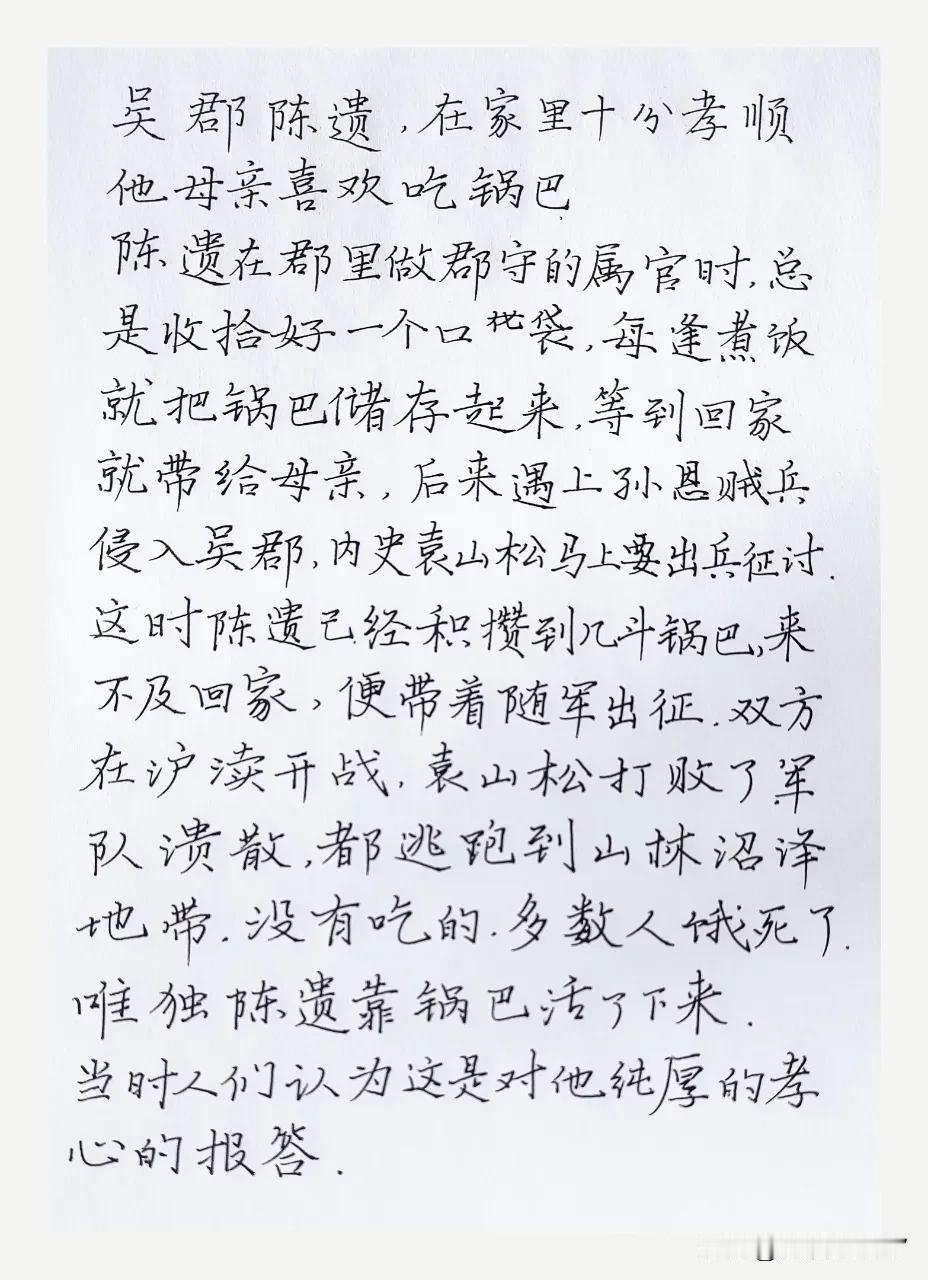 吴郡陈遗,在家里十分孝顺
他母亲喜欢吃锅巴
陈遗在郡里做郡守的属官时,总
是收拾好一个口袋,每逢煮饭
就把锅巴储存起来,等到回家
就带给母亲,后来遇上孙恩贼兵
侵入吴郡,内史袁山松马上要出兵征讨.
这时陈遗已经积攒到几斗锅巴,来
不及回家,便带着随军出征.双方
在沪渎开战,袁山松打败了,军
队溃散,都逃跑到山林沼泽
地带.没有吃的.多数人饿死了.
唯独陈遗靠锅巴活了下来.
当时人们认为这是对他纯厚的孝
心的报答.